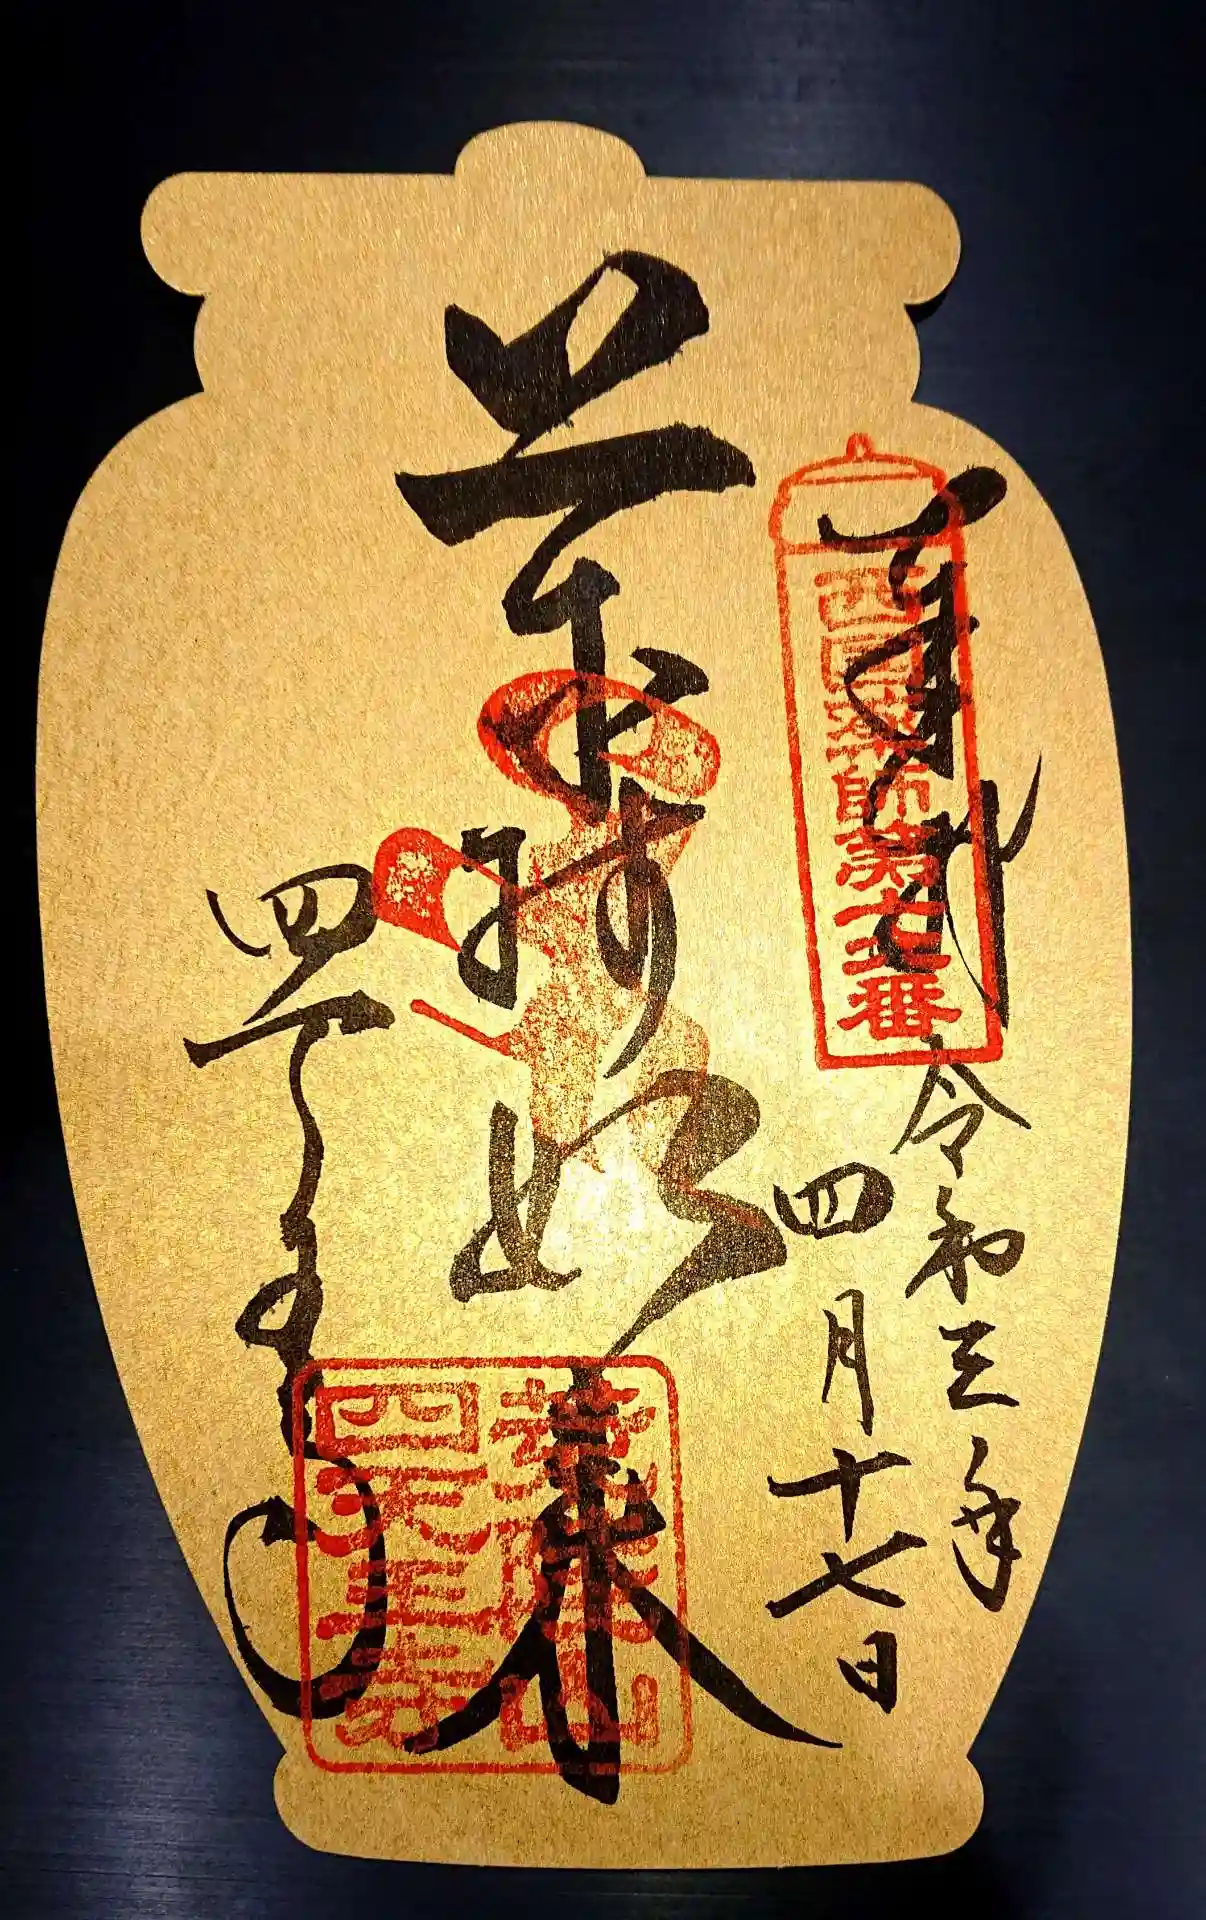 奉拝
西国薬師第十六番
令和三年
四月十七日
薬師如来
荒陵山
四天王寺
四天王寺